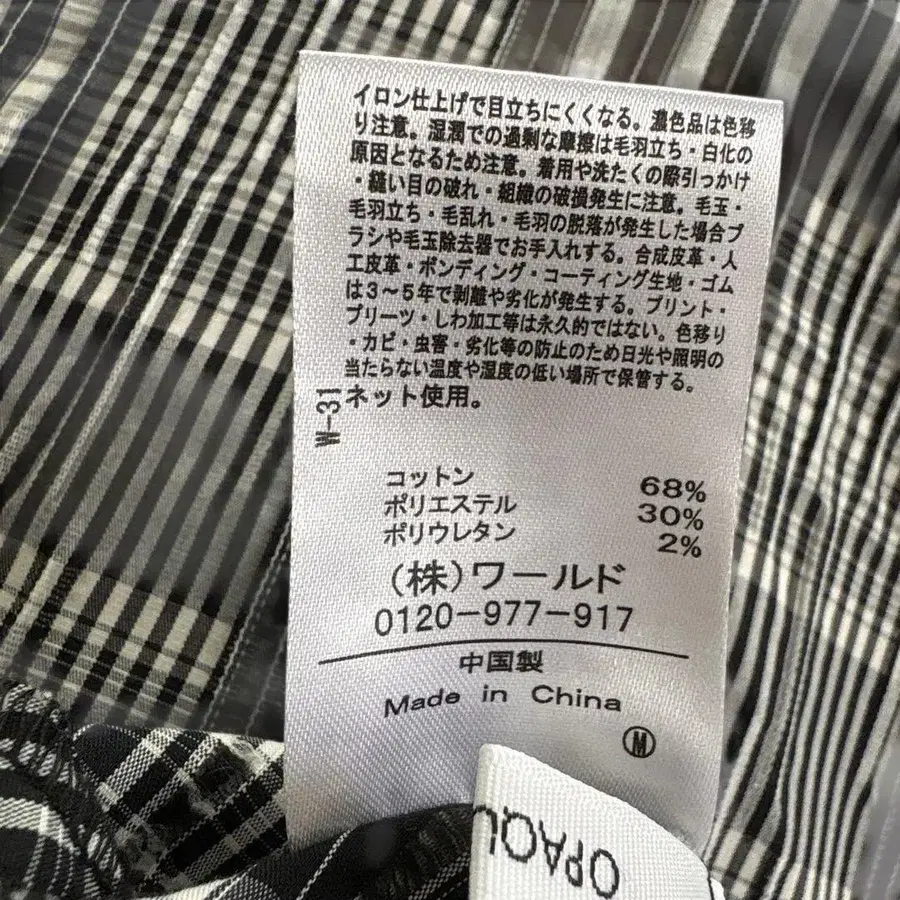 イロン仕上げで目立ちにくくなる。濃色品は色移
り注意。湿潤での過剰な摩擦は毛羽立ち・白化の
原因となるため注意。着用や洗たくの際引っかけ
・縫い目の破れ・組織の破損発生に注意。毛玉・
毛羽立ち・毛乱れ・毛羽の脱落が発生した場合ブ
ラシや毛玉除去器でお手入れする。合成皮革・人
工皮革・ボンディング・コーティング生地・ゴム
は3〜5年で剥離や劣化が発生する。プリント・
プリーツ・しわ加工等は永久的ではない。色移り
・カビ・虫害・劣化等の防止のため日光や照明の
当たらない温度や湿度の低い場所で保管する。
ネット使用。
W-31
コットン 68%
ポリエステル 30%
ポリウレタン 2%
(株)ワールド
0120-977-917
中国製
Made in China
M
OPAQU